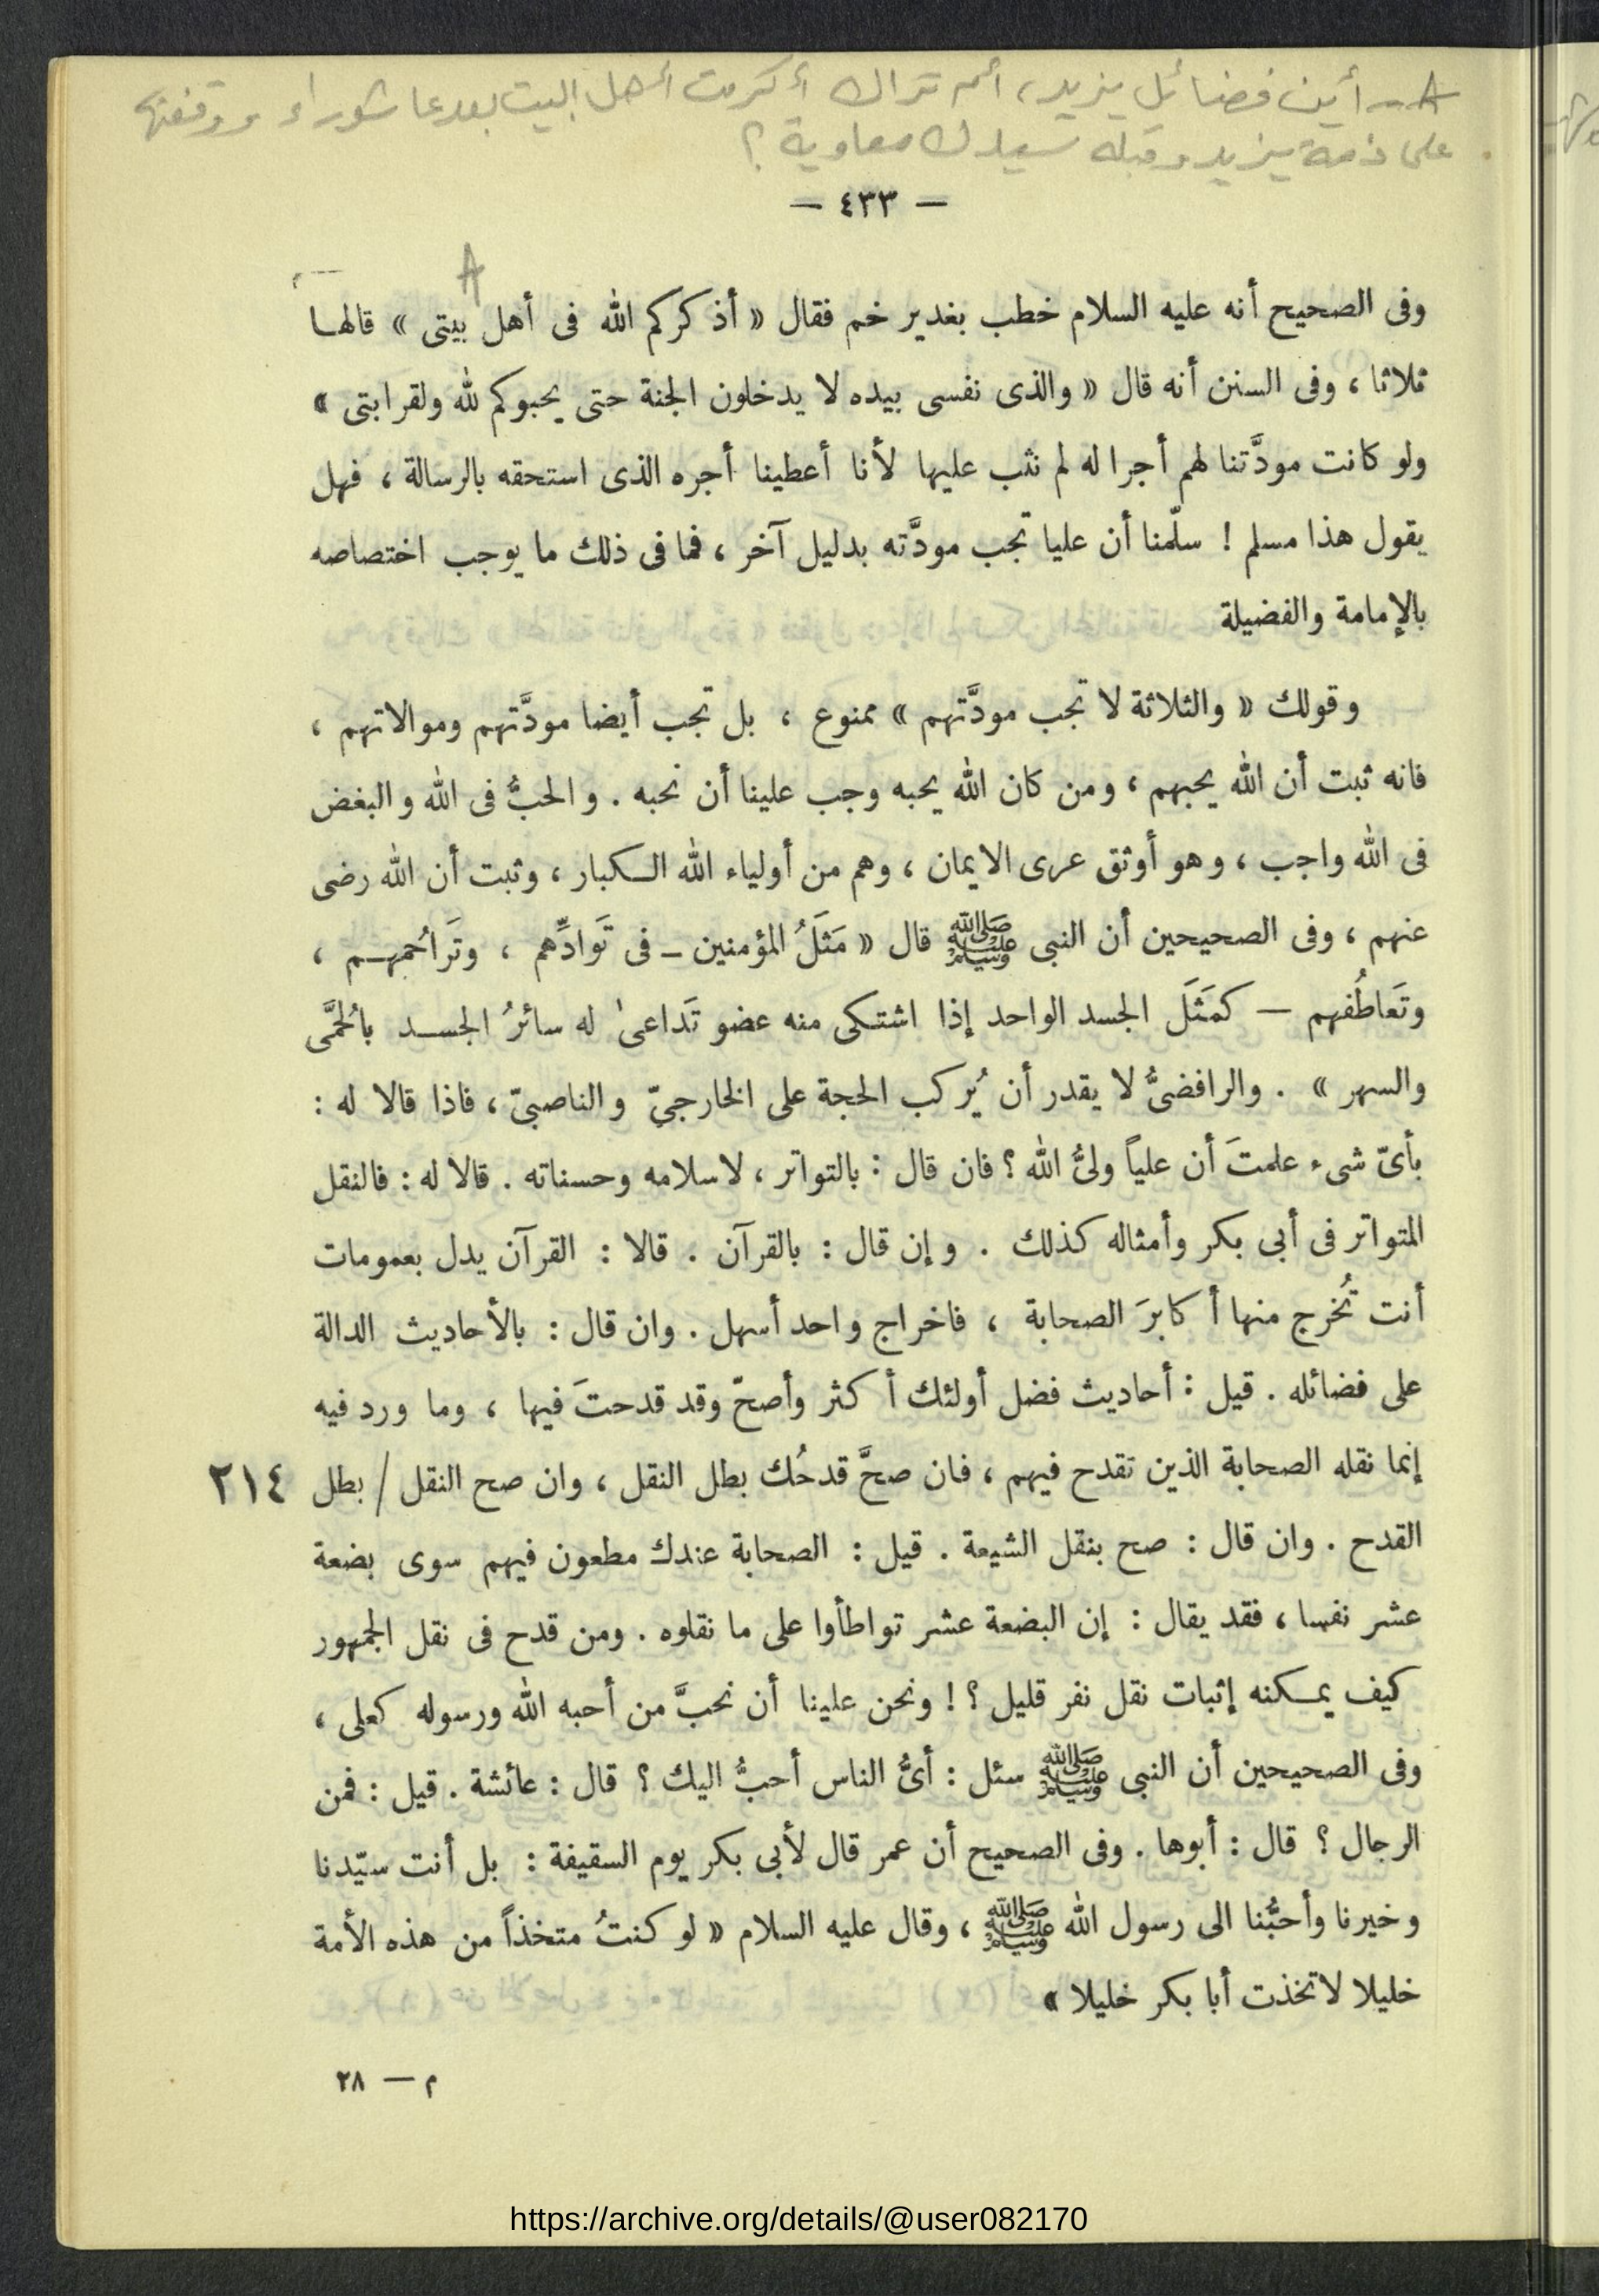 A – أين فضائل يزيد، ألم تراك أكرمت أهل البيت بعد عاشوراء
على ذمة يزيد وقبله سيدك معاوية ؟
— ٤٣٣ —
A
وفى الصحيح أنه عليه السلام خطب بغدير خم فقال « أذكركم الله فى أهل بيتى » قالها
ثلاثا ، وفى السنن أنه قال « والذى نفسى بيده لا يدخلون الجنة حتى يحبوكم لله ولقرابتى »
ولو كانت مودَّتنا لهم أجرا له لم نثب عليها لأنا أعطينا أجره الذى استحقه بالرسالة ، فهل
يقول هذا مسلم ! سلّمنا أن عليا تجب مودَّته بدليل آخر ، فما فى ذلك ما يوجب اختصاصه
بالإمامة والفضيلة
وقولك « والثلاثة لا تجب مودَّتهم » ممنوع ، بل تجب أيضا مودَّتهم وموالاتهم ،
فانه ثبت أن الله يحبهم ، ومن كان الله يحبه وجب علينا أن نحبه . والحبُّ فى الله والبغض
فى الله واجب ، وهو أوثق عرى الايمان ، وهم من أولياء الله الكبار ، وثبت أن الله رضى
عنهم ، وفى الصحيحين أن النبى ﷺ قال « مَثَلُ المؤمنين – فى تَوادِّهم ، وتَراحُمهم ،
وتَعاطُفهم — كمَثَلَ الجسد الواحد إذا اشتكى منه عضو تَداعىٰ له سائرُ الجسد بالحُمَّى
والسهر » . والرافضىُّ لا يقدر أن يُركب الحجة على الخارجيّ والناصبيّ ، فاذا قالا له :
بأىّ شىء علمتَ أن علياً ولىُّ الله ؟ فان قال : بالتواتر ، لاسلامه وحسناته . قالا له : فالنقل
المتواتر فى أبى بكر وأمثاله كذلك . وإن قال : بالقرآن . قالا : القرآن يدل بعمومات
أنت تُخرج منها أكابرَ الصحابة ، فاخراج واحد أسهل . وان قال : بالأحاديث الدالة
على فضائله . قيل : أحاديث فضل أولئك أكثر وأصحّ وقد قدحتَ فيها ، وما ورد فيه
إنما نقله الصحابة الذين تقدح فيهم ، فان صحَّ قدحُك بطل النقل ، وان صح النقل / بطل ٢١٤
القدح . وان قال : صح بنقل الشيعة . قيل : الصحابة عندك مطعون فيهم سوى بضعة
عشر نفسا ، فقد يقال : إن البضعة عشر تواطأوا على ما نقلوه . ومن قدح فى نقل الجمهور
كيف يمكنه إثبات نقل نفر قليل ؟ ! ونحن علينا أن نحبَّ من أحبه الله ورسوله كعلى ،
وفى الصحيحين أن النبى ﷺ سئل : أىُّ الناس أحبُّ اليك ؟ قال : عائشة . قيل : فمن
الرجال ؟ قال : أبوها . وفى الصحيح أن عمر قال لأبى بكر يوم السقيفة : بل أنت سيّدنا
وخيرنا وأحبُّنا الى رسول الله ﷺ ، وقال عليه السلام « لو كنتُ متخذاً من هذه الأمة
خليلا لاتخذت أبا بكر خليلا »
م — ٢٨
https://archive.org/details/@user082170